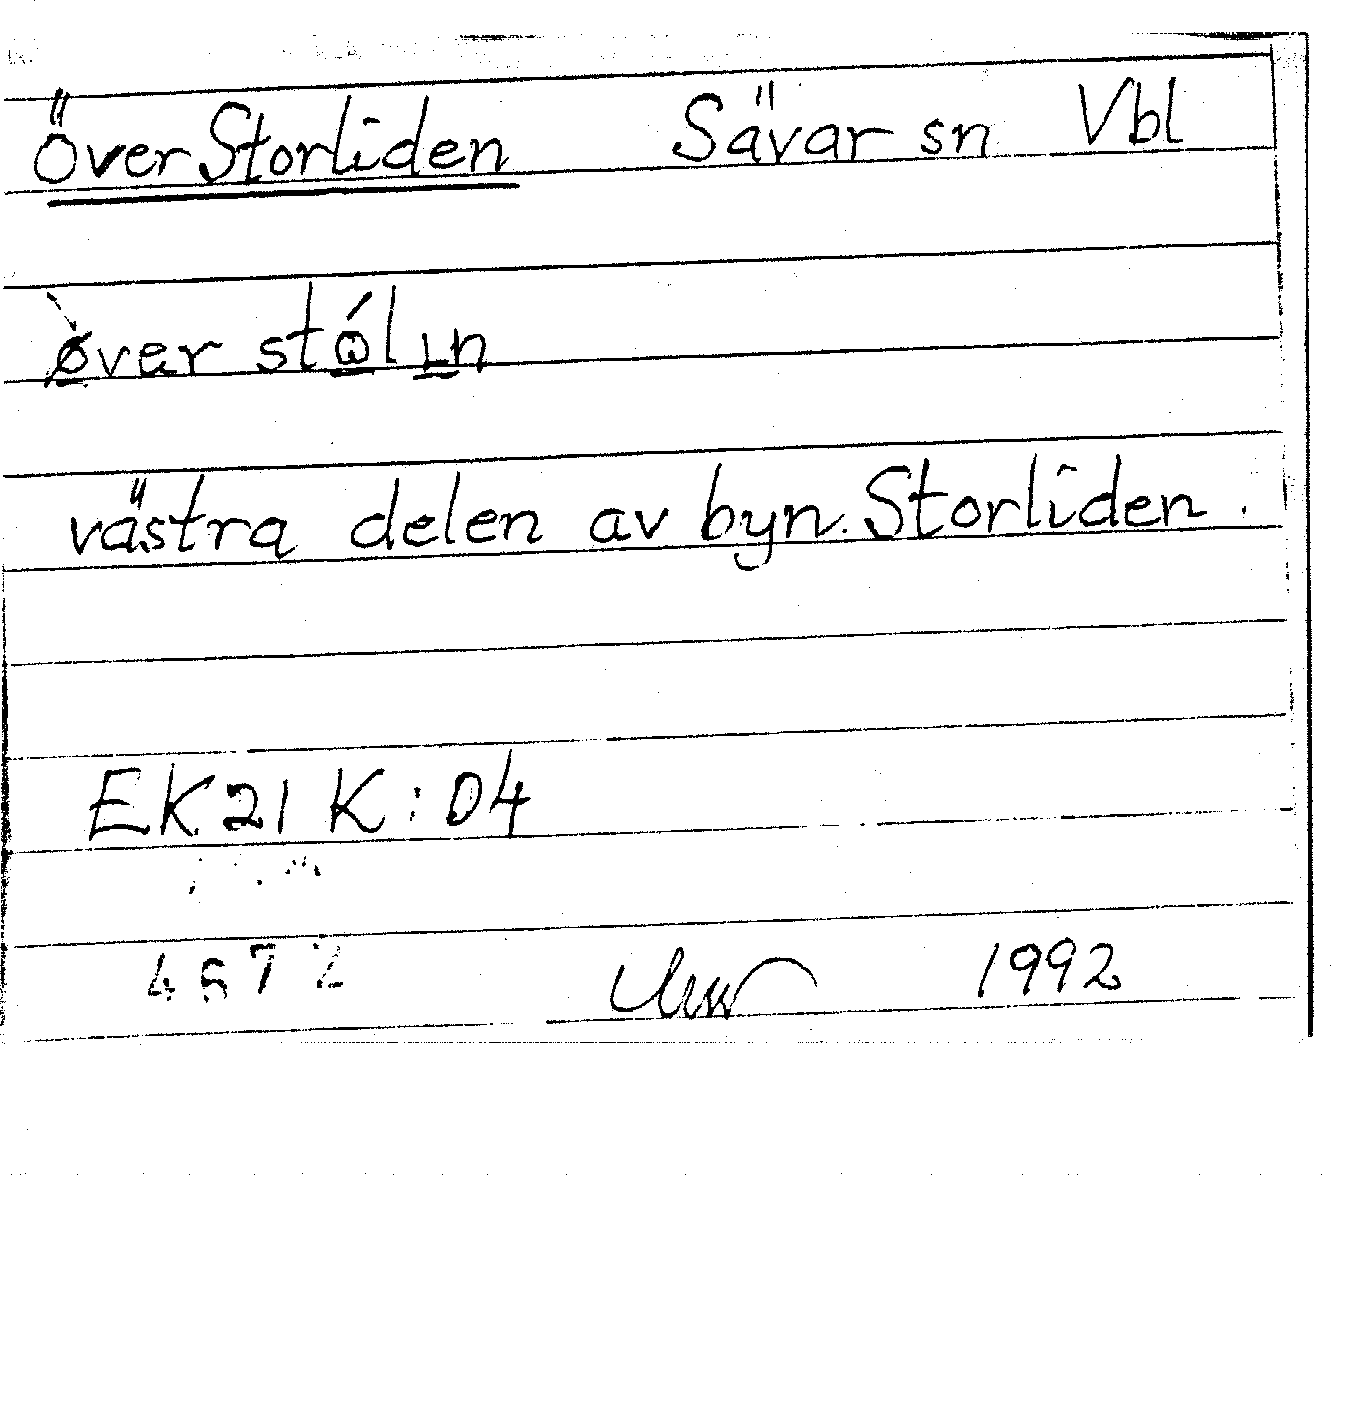 ÖverStorliden Sävar sn Vbl
øver stǻlın
västra delen av byn Storliden.
EK21 K:04
4672 1992